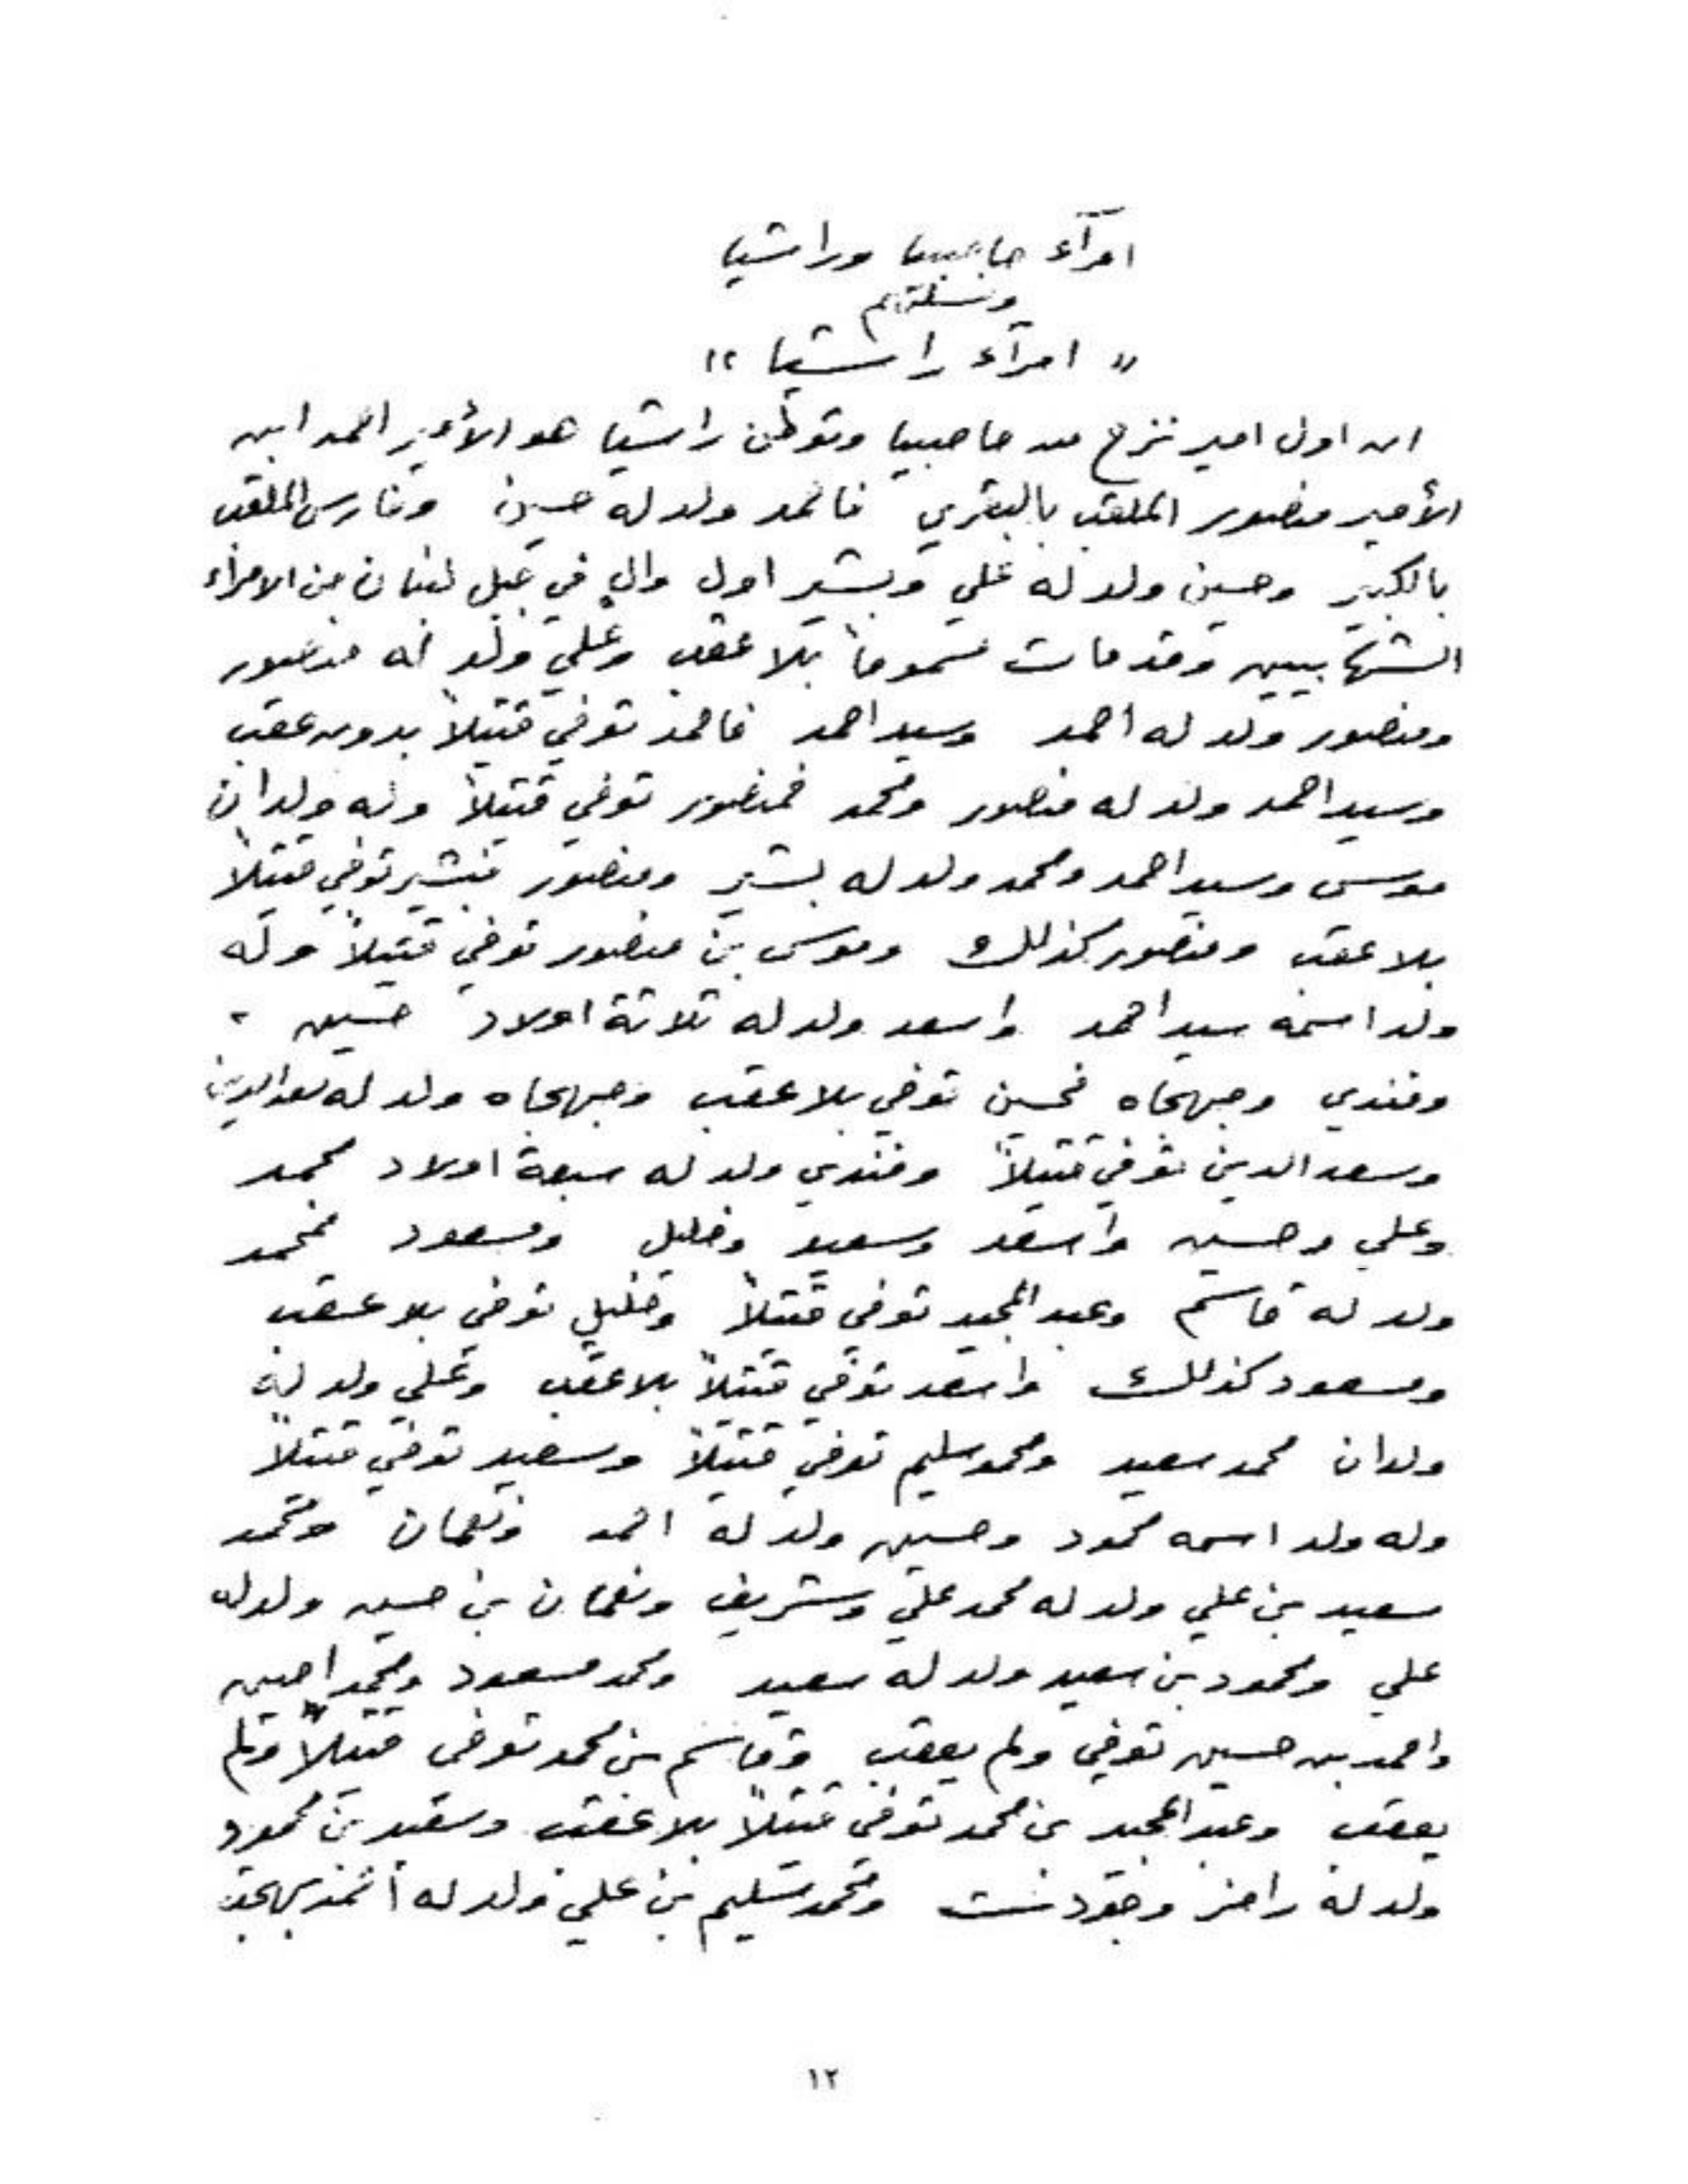 امرآء حاصبيا وراشيا
وسلالتهم
" امرآء راشيا "
ان اول امير نزح من حاصبيا وتوطن راشيا هو الأمير احمد ابن
الأمير منصور الملقب بالبقري فاحمد ولد له حسين وفارس الملقب
بالكبير وحسين ولد له علي وبشير اول والٍ في جبل لبنان من الامراء
الشهابيين وقد مات مسموماً بلا عقب وعلي ولد له منصور
ومنصور ولد له احمد وسيد احمد فاحمد توفي قتيلاً بدون عقب
وسيد احمد ولد له منصور ومحمد فمنصور توفي قتيلاً وله ولدان
موسى وسيد احمد ومحمد ولد له بشير ومنصور فبشير توفي قتيلاً
بلا عقب ومنصور كذلك وموسى بن منصور توفي قتيلاً وله
ولد اسمه سيد احمد واسعد ولد له ثلاثة اولاد حسين
وفندي وجهجاه فحسين توفي بلا عقب وجهجاه ولد له سعد الدين
وسعد الدين توفي قتيلاً وفندي ولد له سبعة اولاد محمد
وعلي وحسين واسعد وسعيد وخليل ومسعود فمحمد
ولد له قاسم وعبد المجيد توفي قتيلاً وخليل توفي بلا عقب
ومسعود كذلك واسعد توفي قتيلاً بلا عقب وعلي ولد له
ولدان محمد سعيد ومحمد سليم توفي قتيلاً وسعيد توفي قتيلاً
وله ولد اسمه محمود وحسين ولد له احمد ونعمان ومحمد
سعيد بن علي ولد له محمد علي وشريف ونعمان بن حسين ولد له
علي ومحمود بن سعيد ولد له سعيد ومحمد مسعود ومحمد امين
واحمد بن حسين توفي ولم يعقب وقاسم بن محمد توفى قتيلاً ولم
يعقب وعبد المجيد بن محمد توفى قتيلاً بلا عقب وسعيد بن محمود
ولد له رامز وجودت ومحمد سليم بن علي ولد له أحمد بهجت
١٢